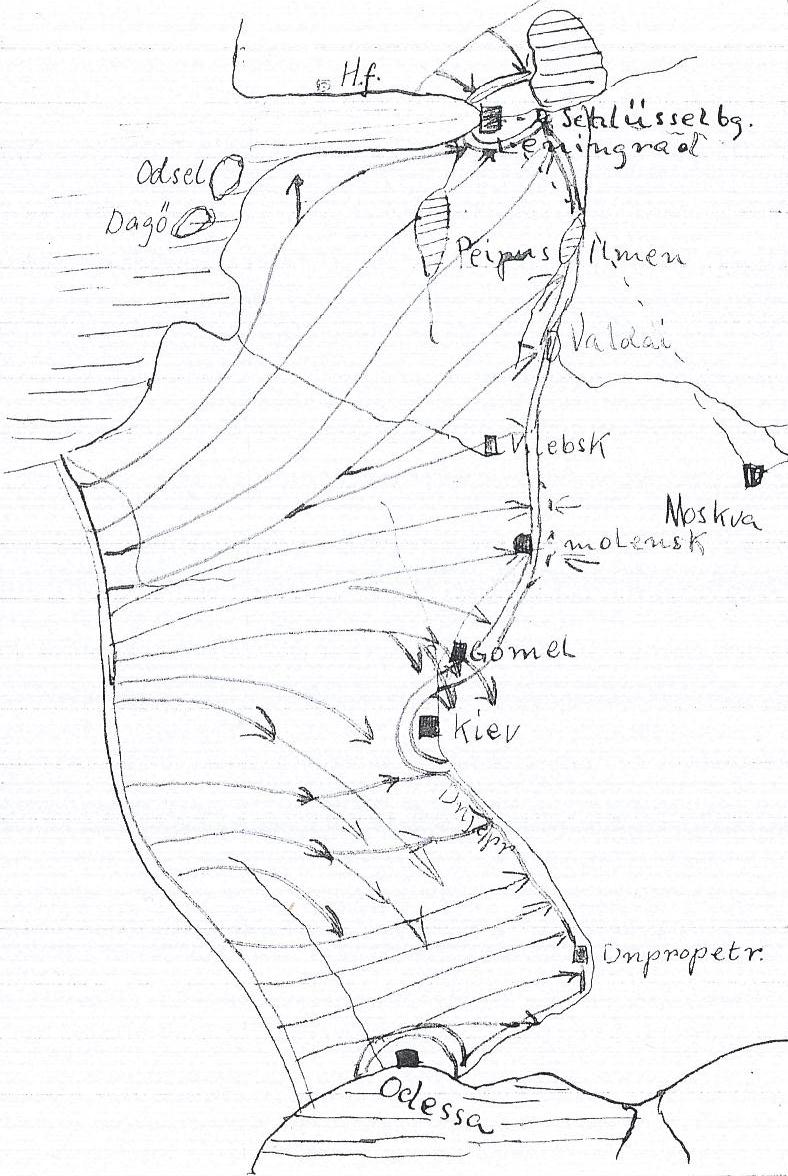 H.f.
Schlüsselbg.
Leningrad
Odsel
Dagö
Peipus
Ilmen
Valdai
Vitebsk
Moskva
Smolensk
Gomel
Kiev
Dnjepr
Dnpropetr.
Odessa